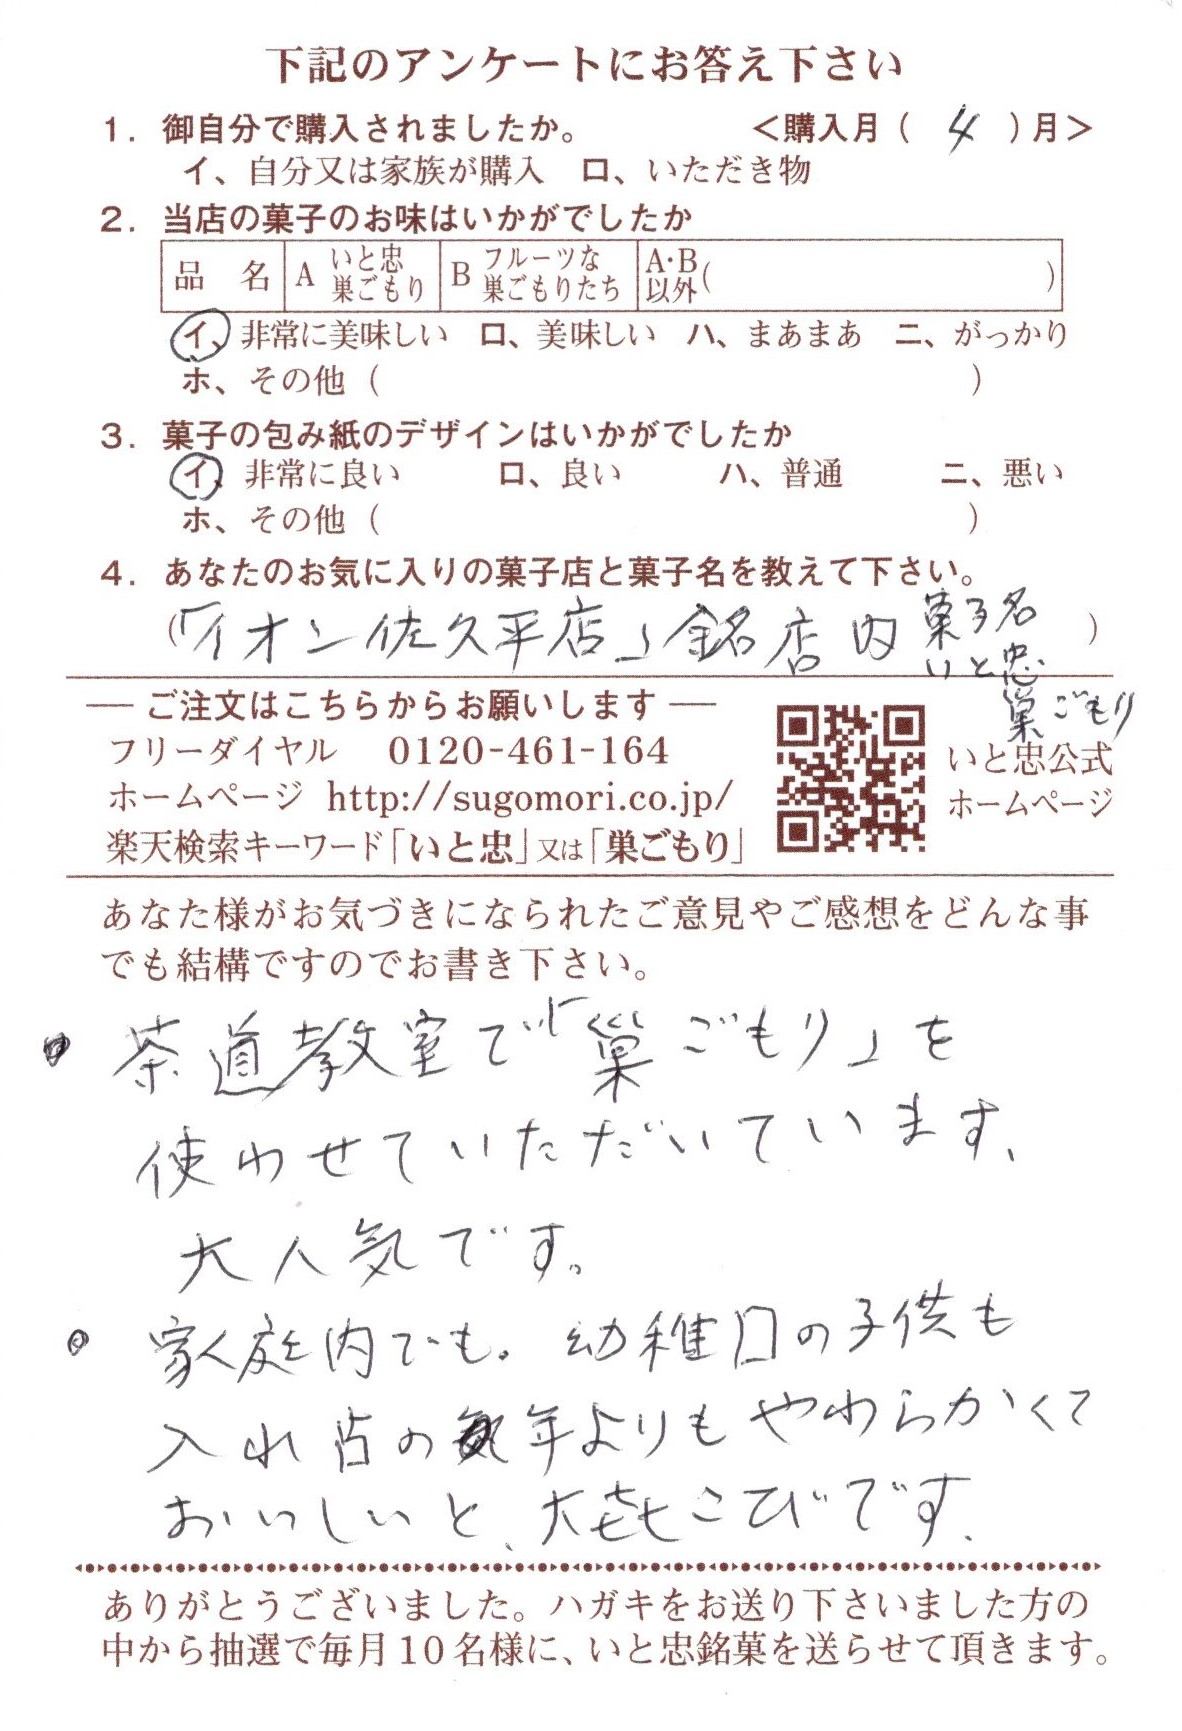 下記のアンケートにお答え下さい
1. 御自分で購入されましたか。 <購入月( 4 )月>
イ、自分又は家族が購入 ロ、いただき物
2. 当店の菓子のお味はいかがでしたか
品 名 A いと忠巣ごもり B フルーツな巣ごもりたち A·B以外( )
イ、非常に美味しい ロ、美味しい ハ、まあまあ ニ、がっかり
ホ、その他( )
3. 菓子の包み紙のデザインはいかがでしたか
イ、非常に良い ロ、良い ハ、普通 ニ、悪い
ホ、その他( )
4. あなたのお気に入りの菓子店と菓子名を教えて下さい。
(「イオン佐久平店」銘店内 菓子名 )
いと忠
巣ごもり
― ご注文はこちらからお願いします ―
フリーダイヤル 0120-461-164
ホームページ http://sugomori.co.jp/
楽天検索キーワード「いと忠」又は「巣ごもり」
いと忠公式
ホームページ
あなた様がお気づきになられたご意見やご感想をどんな事
でも結構ですのでお書き下さい。
茶道教室で「巣ごもり」を
使わせていただいています、
大人気です。
家庭内でも。幼稚口の子供も
入れ歯の年よりもやわらかくて
おいしいと、大㐂こびです、
ありがとうございました。ハガキをお送り下さいました方の
中から抽選で毎月10名様に、いと忠銘菓を送らせて頂きます。